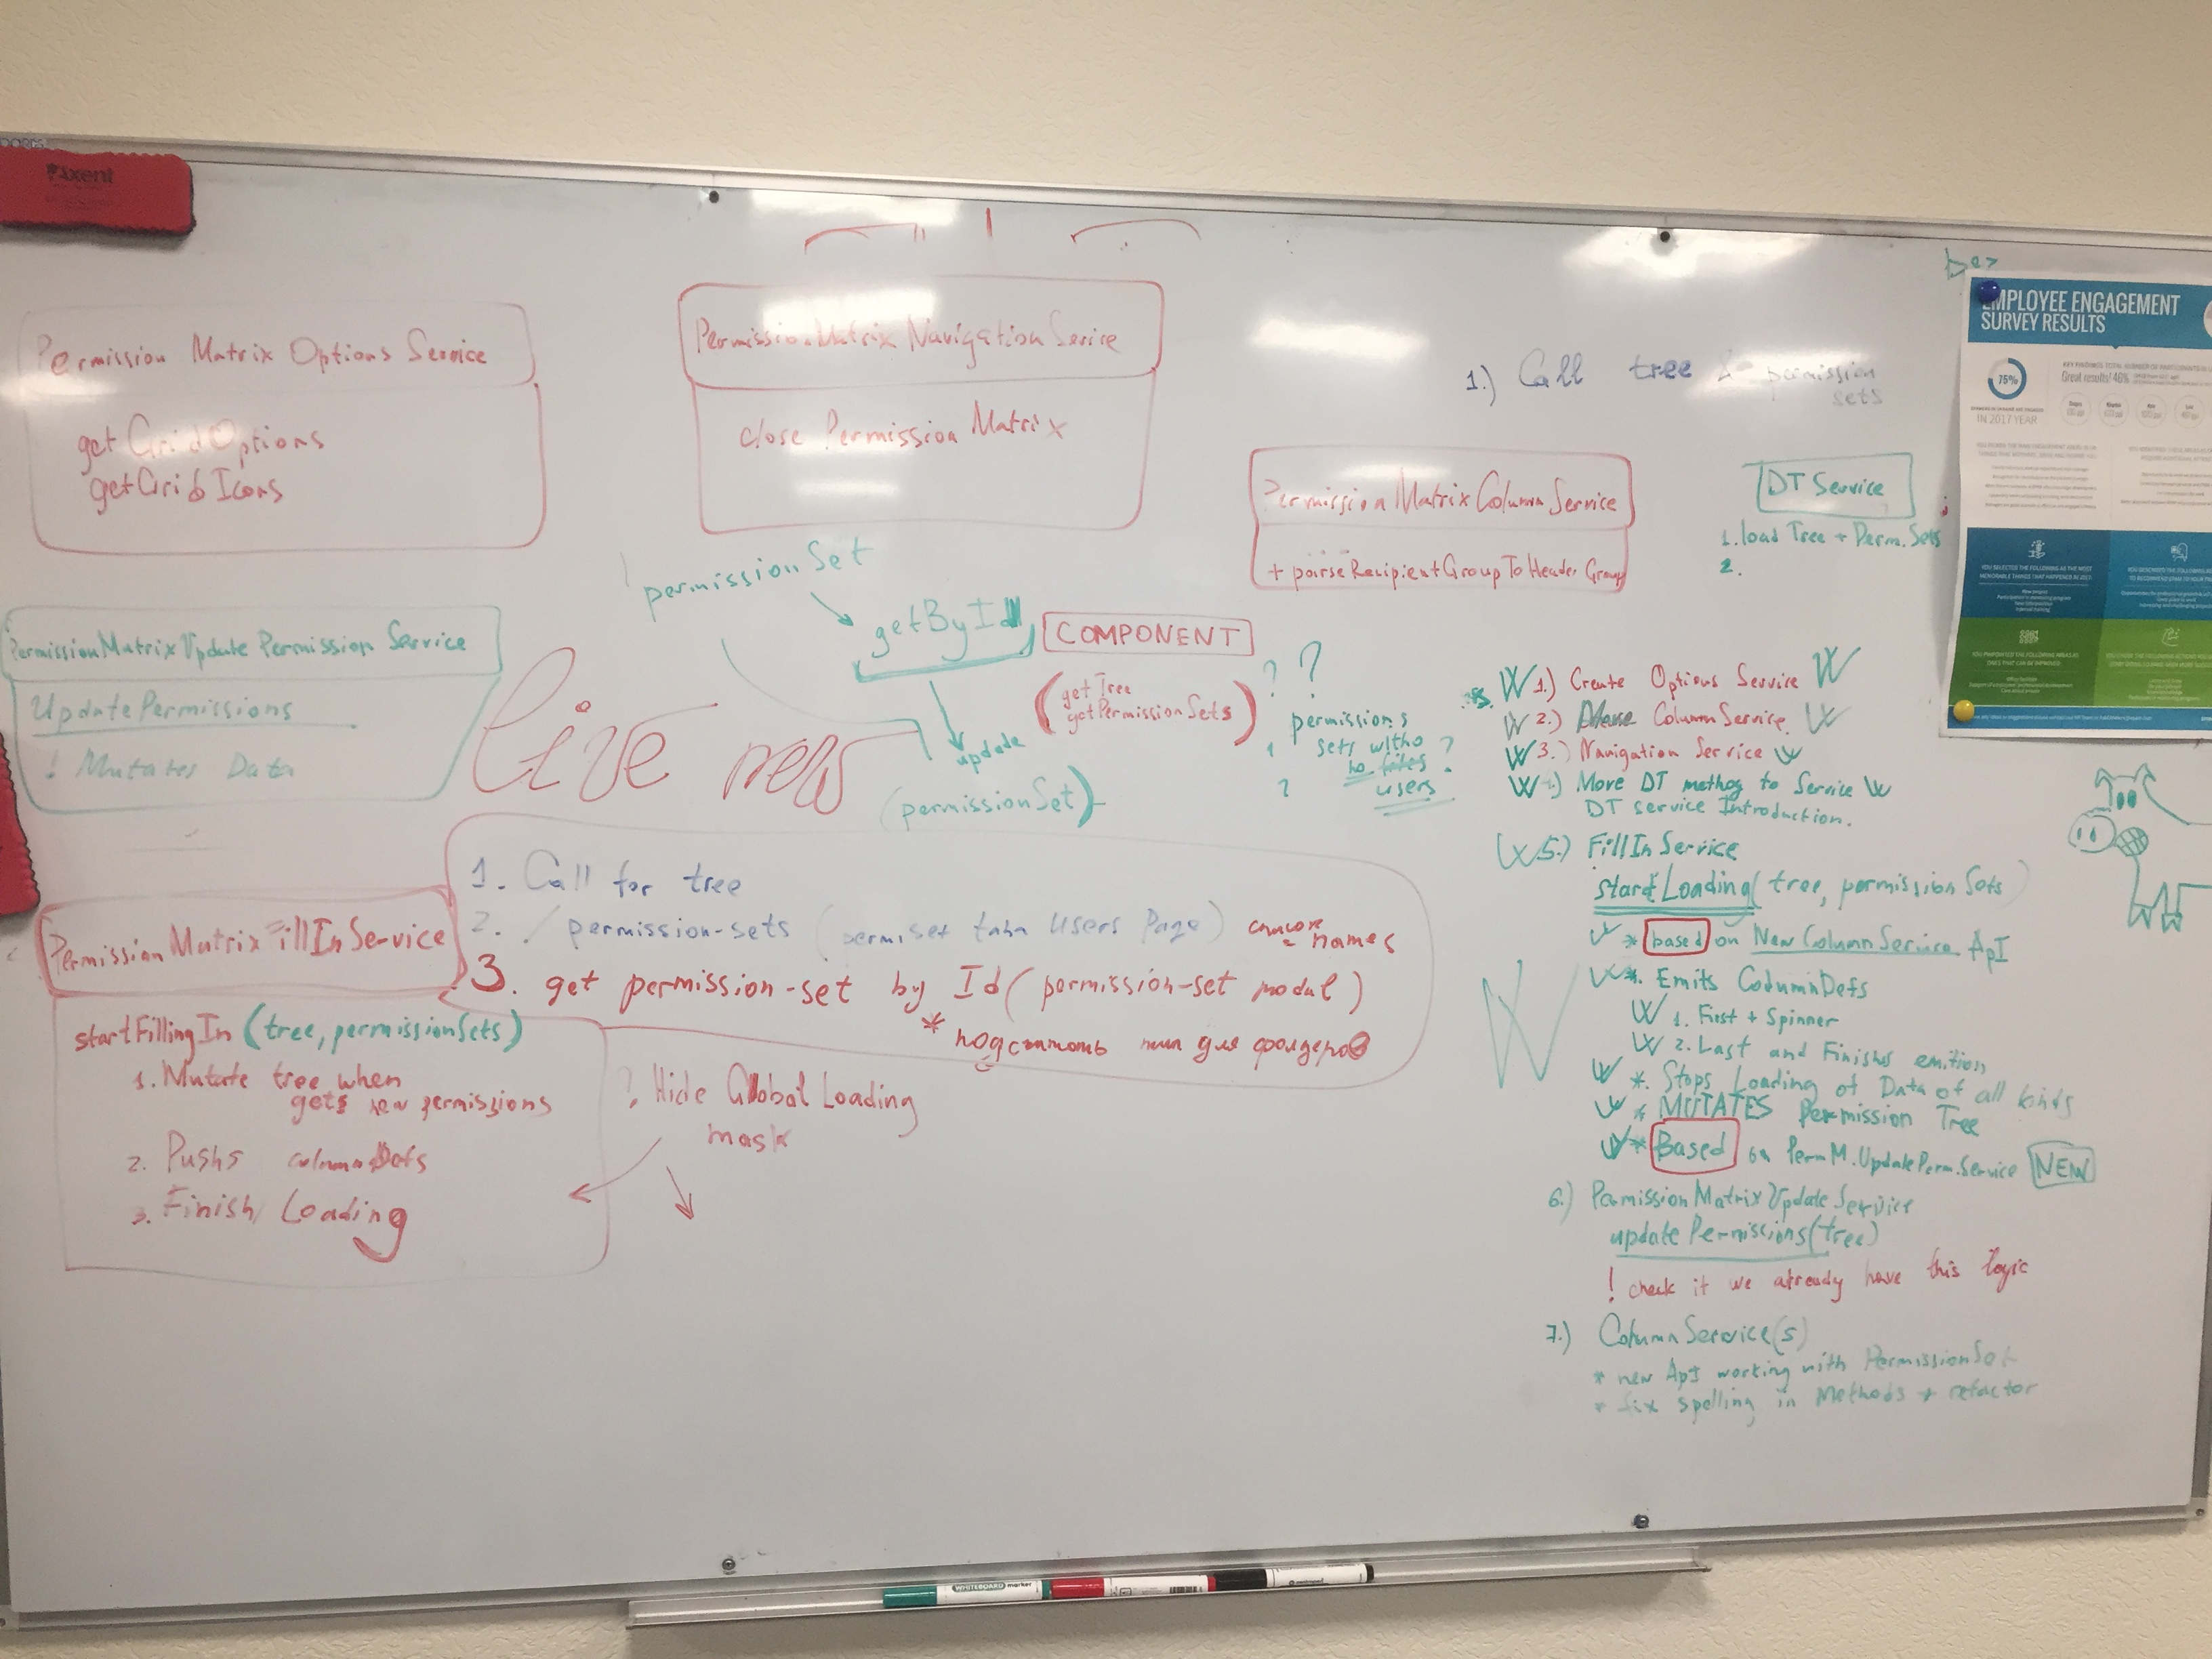 Axent
Permission Matrix Options Service
getGridOptions
getGrib Icons
Permission Matrix Navigation Service
close Permission Matrix
1.) Call tree & permission
sets
Permission Matrix Column Service
+ parseRecipientGroupToHeader Group
DT Service
1. load Tree + Perm. Sets
2.
permissionSet
getById
update
(permissionSet)
COMPONENT
(getTree
getPermissionSets)
? ?
permissions
sets witho
no files ?
users
?
PermissionMatrixUpdate Permission Service
UpdatePermissions
! Mutates Data
Live
Permission Matrix FillInService
startFillingIn (tree, permissionSets)
1. Mutate tree when
gets new permissions
2. Pushs columnDefs
3. Finish Loading
1. Call for tree
2. / permission-sets (permiset таба Users Page) список
names
3. get permission-set by Id (permission-set modal)
* подставить тип для фолдеров
? Hide Global Loading
mask
W 1.) Create Options Service W
W 2.) ColumnService. W
W 3.) Navigation Service W
W 4.) More DT methos to Service W
DT service Introduction.
W 5.) FillInService
startLoading(tree, permission Sets)
* based on New Column Service ApI
W *. Emits ColumnDefs
W 1. First + Spinner
W 2. Last and Finishs emition
W *. Stops Loading of Data of all kinds
W * MUTATES Permission Tree
W * Based on PermM.UpdatePerm.Service NEW
6.) PermissionMatrixUpdate Service
updatePermissions(tree)
! check if we already have this logic
7.) ColumnService(s)
* new ApI working with PermissionSet
* fix spelling in Methods + refactor
W
EMPLOYEE ENGAGEMENT
SURVEY RESULTS
75%
IN 2017 YEAR
Great results! 46%
WHITEBOARD marker